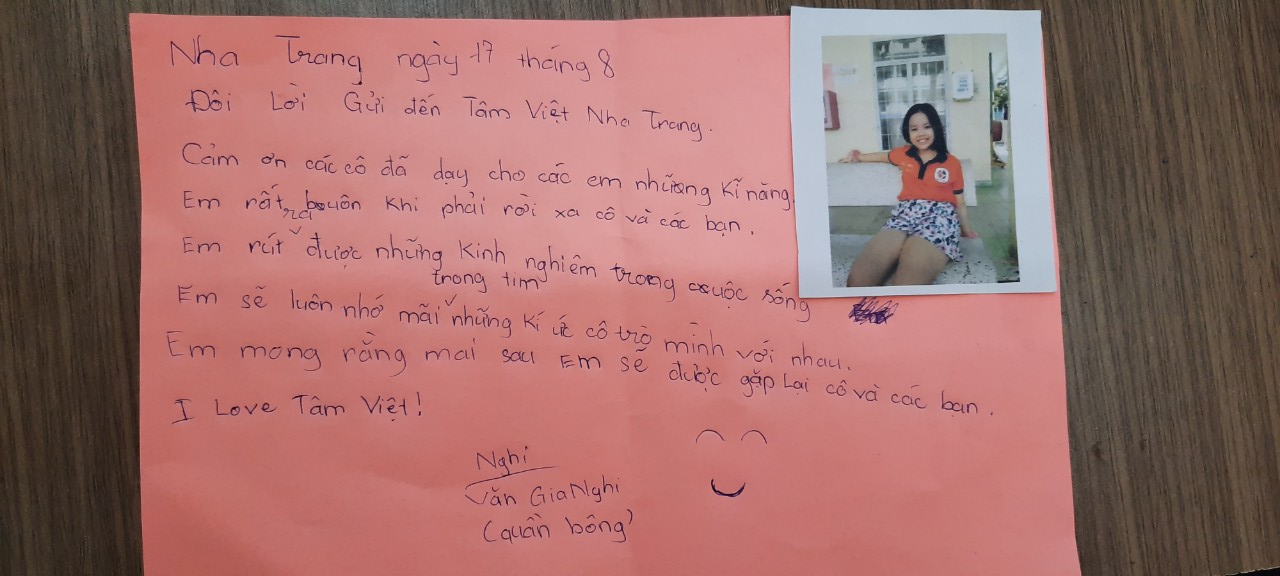 Nha Trang ngày 17 tháng 8
Đôi Lời Gửi đến Tâm Việt Nha Trang.
Cảm ơn các cô đã dạy cho các em những kĩ năng.
Em rất buôn khi phải rời xa cô và các bạn.
Em rút ra được những kinh nghiêm trong cuộc sống
Em sẽ luôn nhớ mãi trong tim những kí ức cô trò mình với nhau.
Em mong rằng mai sau Em sẽ được gặp lại cô và các bạn.
I Love Tâm Việt!
Nghi
Văn Gia Nghi
(quần bông)